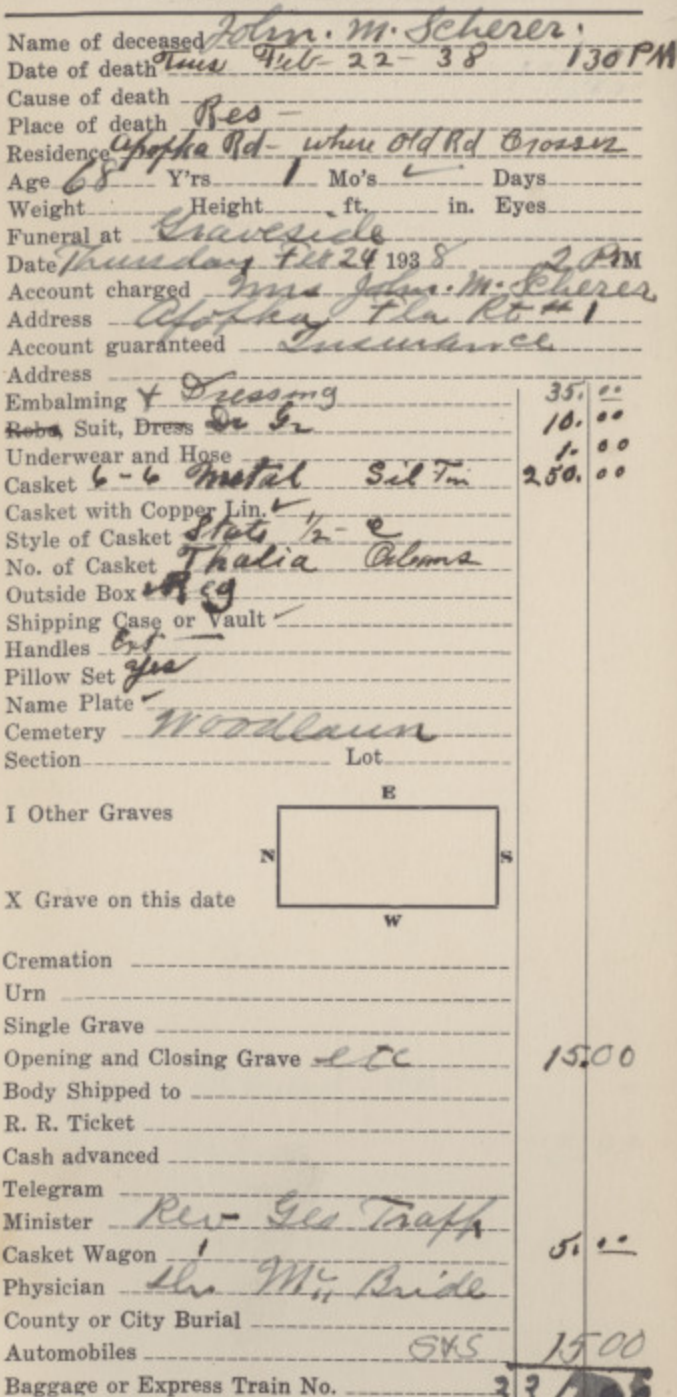 Name of deceased John. M. Scherer.
Date of death Tues Feb- 22- 38 130 PM
Cause of death
Place of death Res -
Residence Apopka Rd- where Old Rd Crosses
Age 68 Y'rs 1 Mo's Days
Weight Height ft. in. Eyes
Funeral at Graveside
Date Thursday Feb 24 1938 2 PM
Account charged Mrs John. M. Scherer
Address Apopka Fla Rt # 1
Account guaranteed Insurance
Address
Embalming & Dressing 35.00
Robe, Suit, Dress 10.00
Underwear and Hose 1.00
Casket 6-6 Metal Sil 250.00
Casket with Copper Lin.
Style of Casket State 1/2-
No. of Casket Thalia
Outside Box Reg
Shipping Case or Vault
Handles Ext
Pillow Set yes
Name Plate
Cemetery Woodlawn
Section Lot
E
I Other Graves
N S
X Grave on this date
W
Cremation
Urn
Single Grave
Opening and Closing Grave etc 15.00
Body Shipped to
R. R. Ticket
Cash advanced
Telegram
Minister Rev Geo Trapp
Casket Wagon 1 5.00
Physician Dr Mc Bride
County or City Burial
Automobiles S&S 15 00
Baggage or Express Train No.